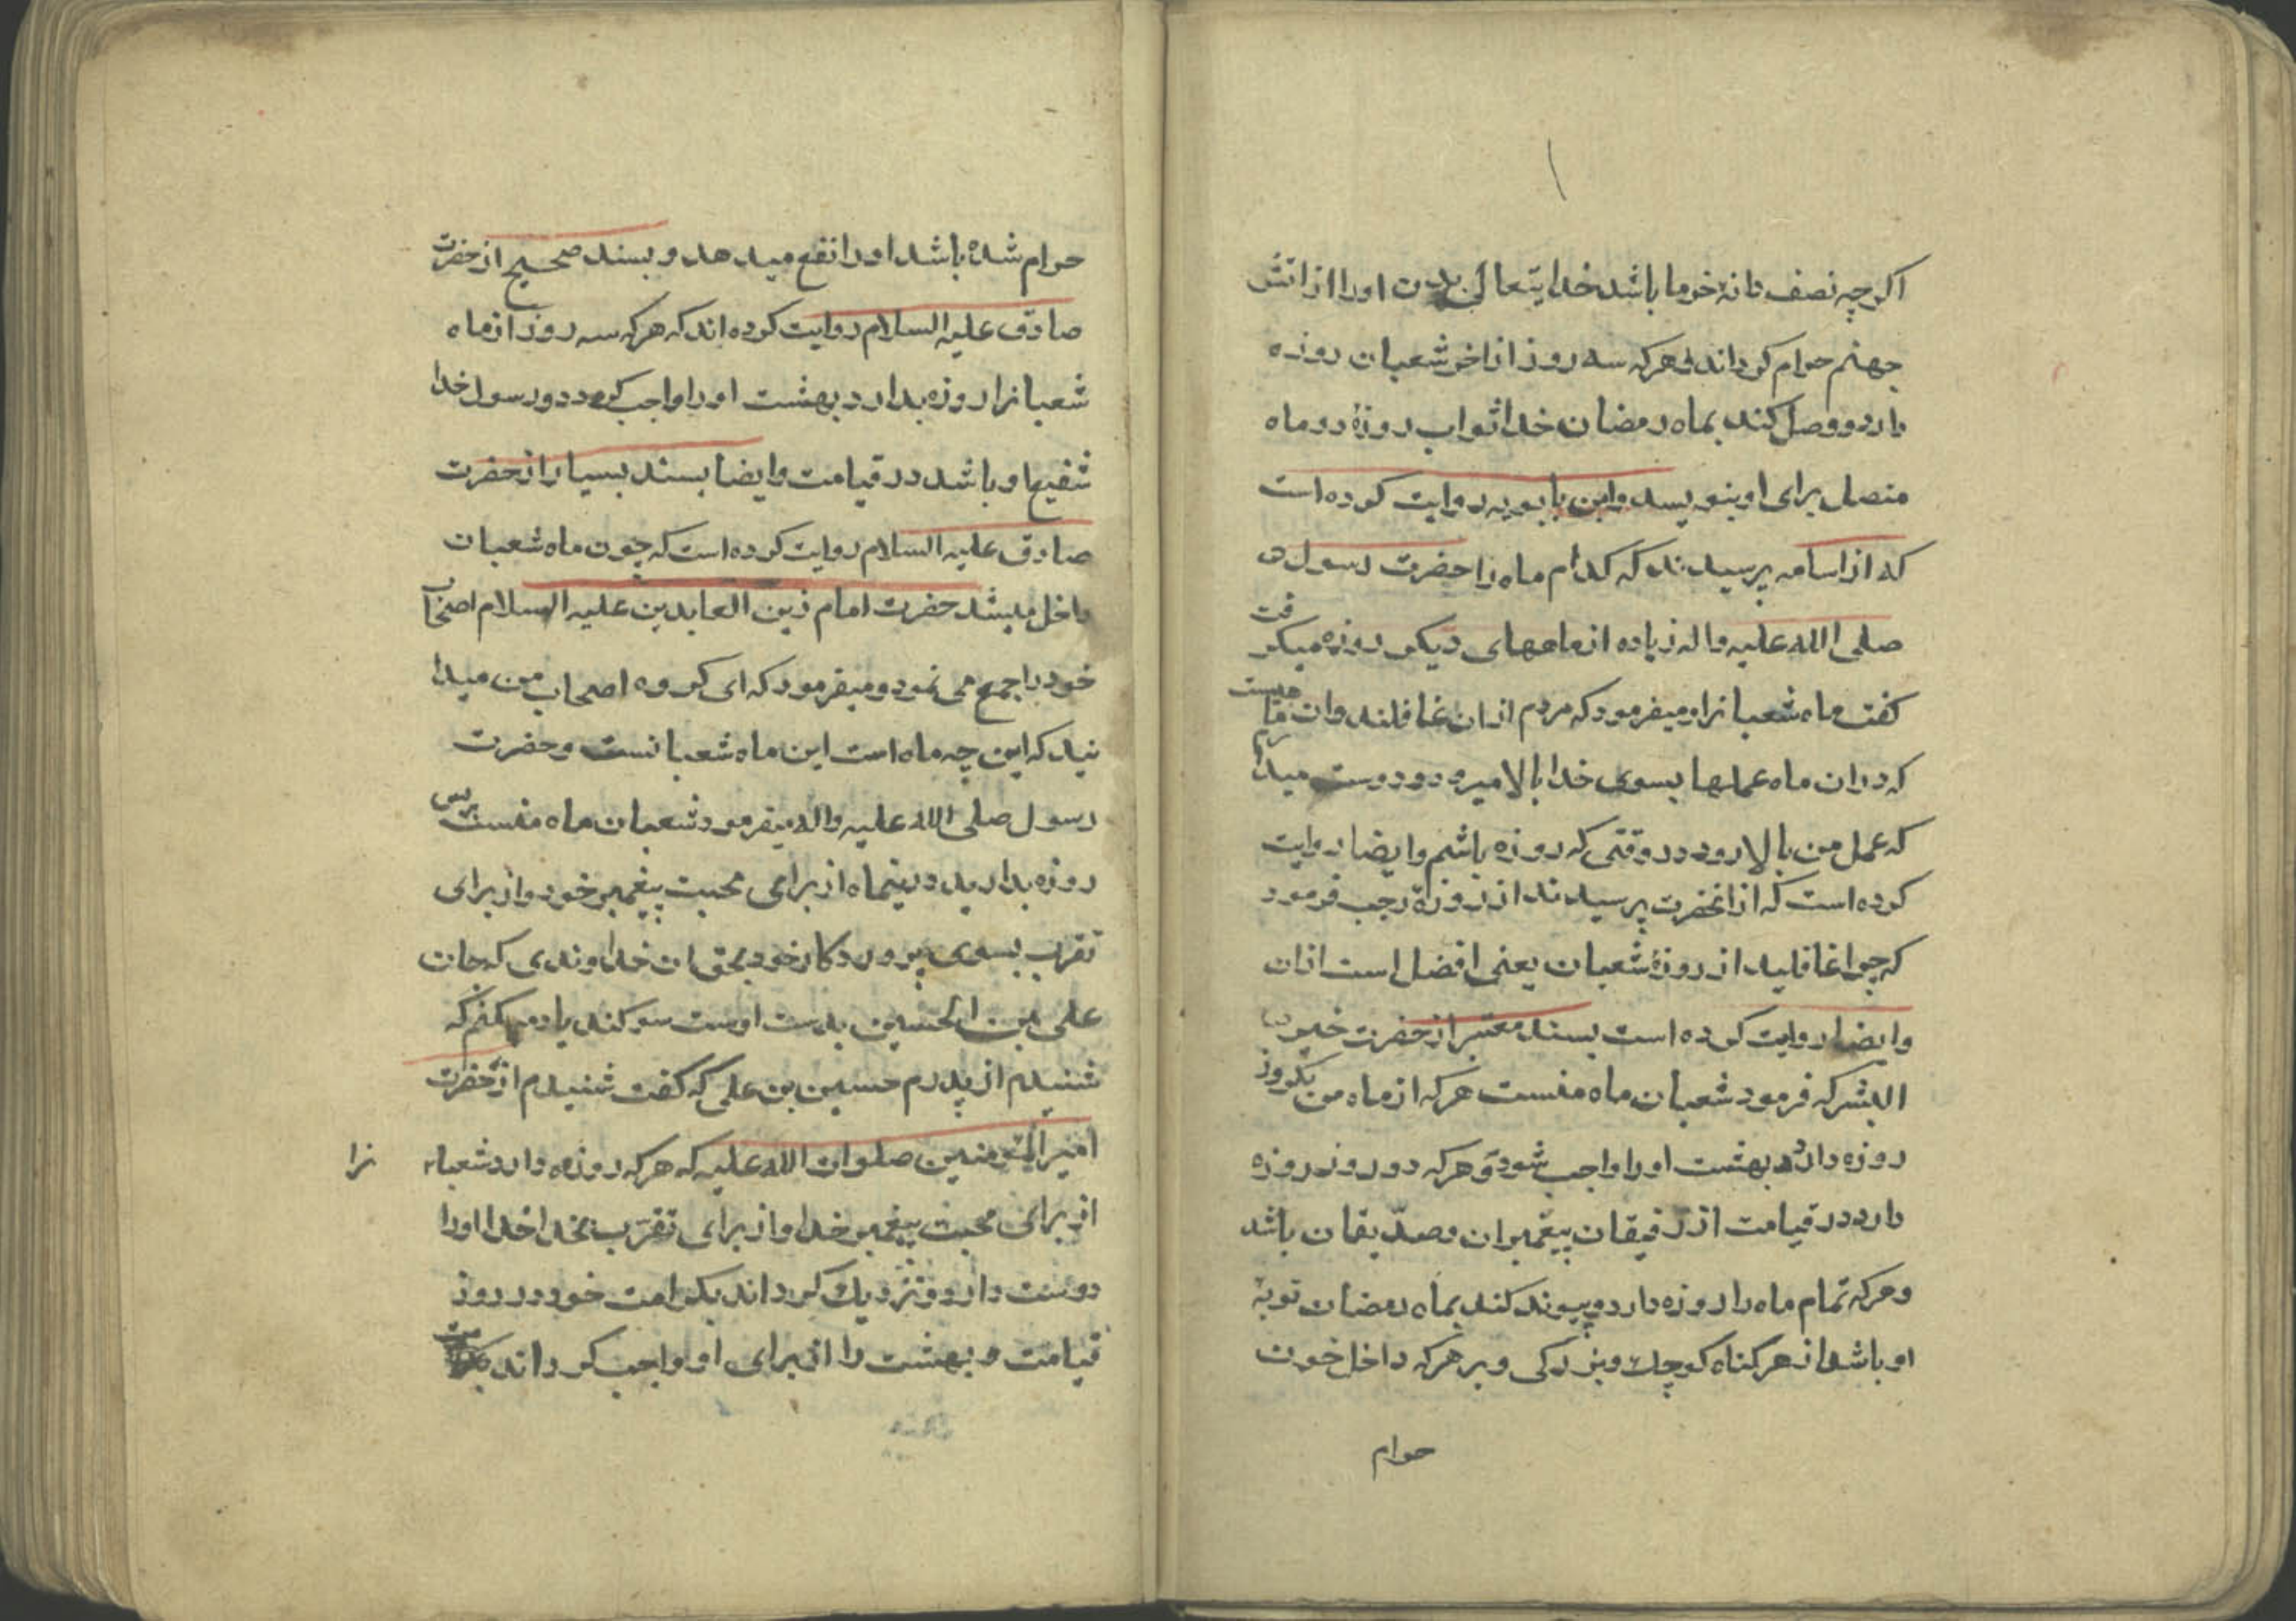 اکرچه نصف دانه خرما باشد خدایتعالی بدن اورا از اتش
جهنم حرام کرداند و هرکه سه روز از اخر شعبان روزه
دارد و وصل کند بماه رمضان خدا ثواب روزهٔ دو ماه
متصل برای او بنویسد وابن بابویه روایت کرده است
که از اسامه پرسیدند که کدام ماه را حضرت رسول
صلی الله علیه واله زیاده از ماههای دیکر روزه میکرفت
کفت ماه شعبانرا و میفرمود که مردم از ان غافلند وان ماهیست
که در ان ماه عملها بسوی خدا بالا میرود و دوست میدارم
که عمل من بالا رود در وقتی که روزه باشم وایضا روایت
کرده است که از انحضرت پرسیدند از روزهٔ رجب فرمود
که چرا غافلید از روزهٔ شعبان یعنی افضل است ازان
وایضا روایت کرده است بسند معتبر از حضرت خیر
البشر که فرمود شعبان ماه منست هرکه از ماه من یکروز
روزه دارد بهشت اورا واجب شود و هرکه دو روز روزه
دارد در قیامت از رفیقان پیغمبران وصدّیقان باشد
و هرکه تمام ماه را روزه دارد و پیوند کند بماه رمضان توبهٔ
او باشد از هر کناه کوچک و بزرکی و بر هرکه داخل خون
حرام
حرام شده باشد اورا نفع میدهد و بسند صحیح از حضرت
صادق علیه السلام روایت کرده اند که هرکه سه روز از ماه
شعبانرا روزه بدارد بهشت اورا واجب کردد و رسول خدا
شفیع او باشد در قیامت وایضا بسند بسیار از حضرت
صادق علیه السلام روایت کرده است که چون ماه شعبان
داخل میشد حضرت امام زین العابدین علیه السلام اصحاب
خود را جمع می نمود و میفرمود که ای کروه اصحاب من میدا
نید که این چه ماه است این ماه شعبانست و حضرت
رسول صلی الله علیه واله میفرمود شعبان ماه منست پس
روزه بدارید درینماه از برای محبت پیغمبر خود واز برای
تقرب بسوی پروردکار خود بحق ان خداوندی که جان
علی بن الحسین بدست اوست سوکند یاد میکنم که
شنیدم از پدرم حسین بن علی که کفت شنیدم از حضرت
امیرالمؤمنین صلوات الله علیه که هرکه روزه دارد شعبا نرا
از برای محبت پیغمبر خدا واز برای تقرّب بخدا خدا اورا
دوست دارد و نزدیک کرداند بکرامت خود در روز
قیامت و بهشت را از برای او واجب کرداند